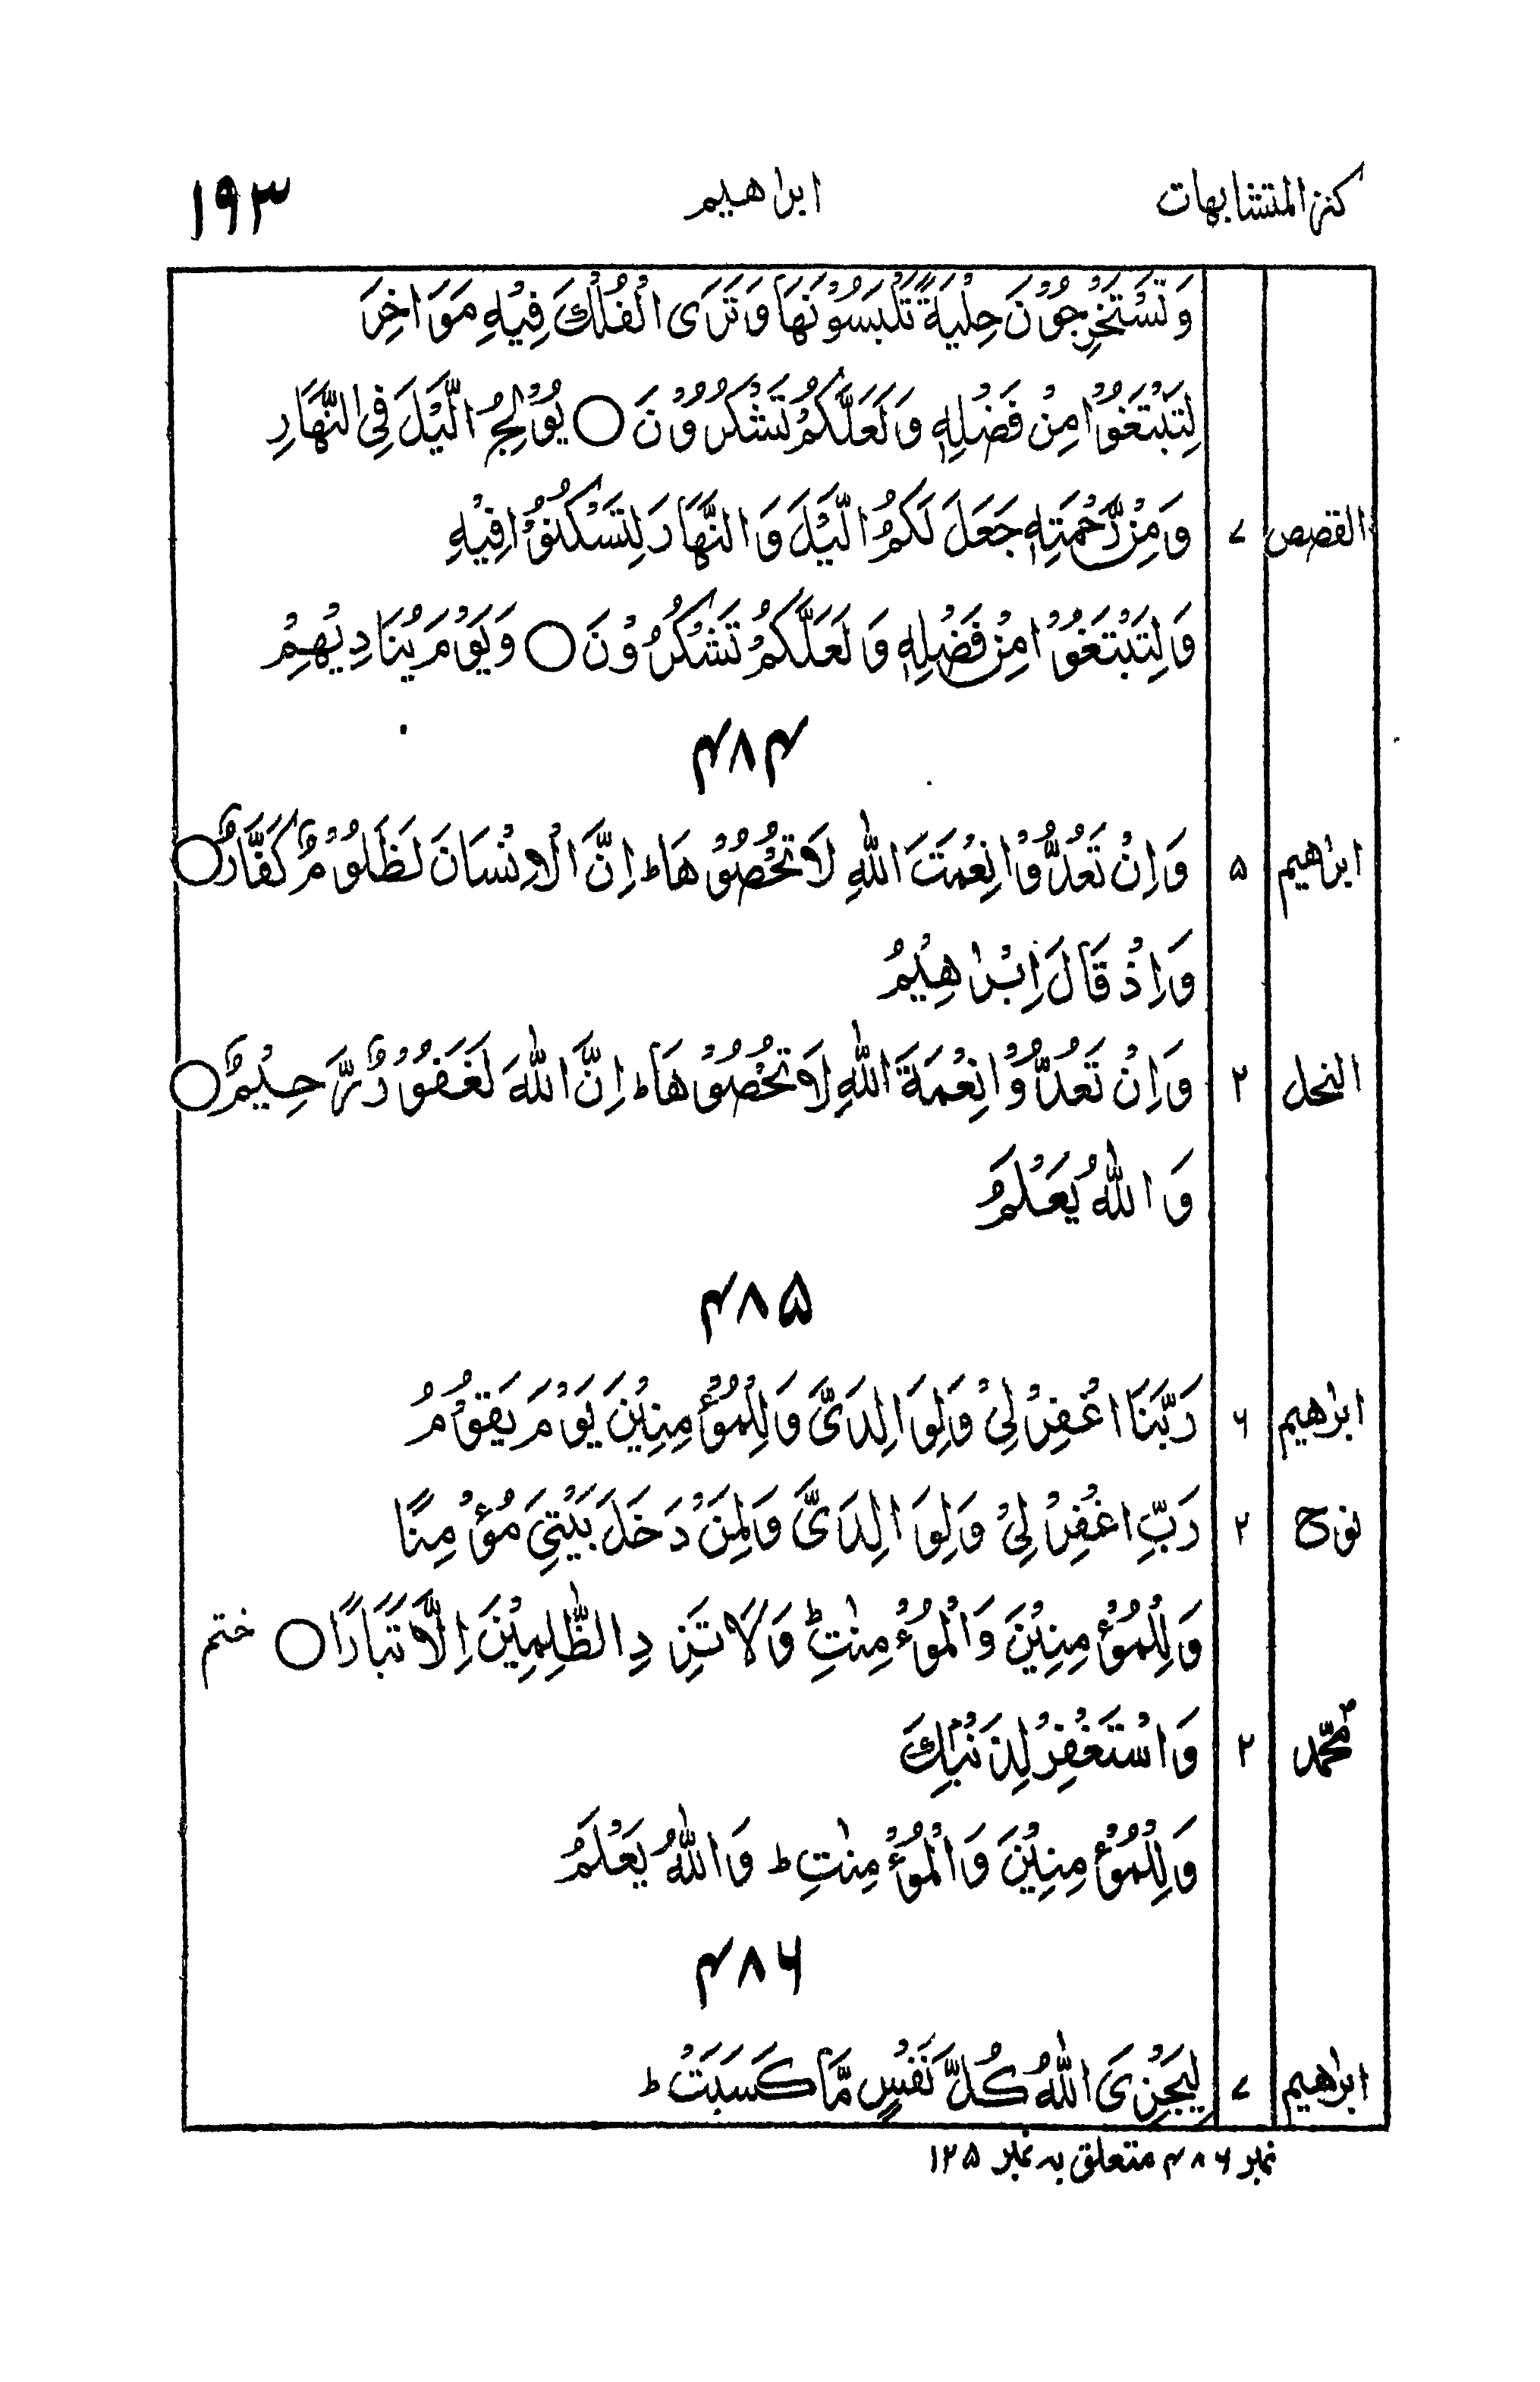 كنز المتشابهات ابراهيم ۱۹۳
وَ تَسْتَخْرِجُوْنَ حِلْيَةً تَلْبَسُوْنَهَا وَ تَرَى الْفُلْكَ فِيْهِ مَوَاخِرَ
لِتَبْتَغُوْا مِنْ فَضْلِهٖ وَ لَعَلَّكُمْ تَشْكُرُوْنَ ○ يُوْلِجُ الَّيْلَ فِى النَّهَارِ
القصص ۷ وَ مِنْ رَّحْمَتِهٖ جَعَلَ لَكُمُ الَّيْلَ وَ النَّهَارَ لِتَسْكُنُوْا فِيْهِ
وَ لِتَبْتَغُوْا مِنْ فَضْلِهٖ وَ لَعَلَّكُمْ تَشْكُرُوْنَ ○ وَ يَوْمَ يُنَادِيْهِمْ
۴۸۴
ابرٰهيم ۵ وَ اِنْ تَعُدُّوْا نِعْمَتَ اللّٰهِ لَا تُحْصُوْهَا ؕ اِنَّ الْاِنْسَانَ لَظَلُوْمٌ كَفَّارٌ ○
وَ اِذْ قَالَ اِبْرٰهِيْمُ
النحل ۲ وَ اِنْ تَعُدُّوْا نِعْمَةَ اللّٰهِ لَا تُحْصُوْهَا ؕ اِنَّ اللّٰهَ لَغَفُوْرٌ رَّحِيْمٌ ○
وَ اللّٰهُ يَعْلَمُ
۴۸۵
ابرٰهيم ۶ رَبَّنَا اغْفِرْ لِيْ وَ لِوَالِدَيَّ وَ لِلْمُؤْمِنِيْنَ يَوْمَ يَقُوْمُ
نوح ۲ رَبِّ اغْفِرْ لِيْ وَ لِوَالِدَيَّ وَ لِمَنْ دَخَلَ بَيْتِيَ مُؤْمِنًا
وَ لِلْمُؤْمِنِيْنَ وَ الْمُؤْمِنٰتِ ؕ وَ لَا تَزِدِ الظّٰلِمِيْنَ اِلَّا تَبَارًا ○ ختم
محمّدؐ ۲ وَ اسْتَغْفِرْ لِذَنْۢبِكَ
وَ لِلْمُؤْمِنِيْنَ وَ الْمُؤْمِنٰتِ ؕ وَ اللّٰهُ يَعْلَمُ
۴۸۶
ابرٰهيم ۷ لِيَجْزِىَ اللّٰهُ كُلَّ نَفْسٍ مَّا كَسَبَتْ ؕ
نمبر ۴۸۶ متعلق بہ نمبر ۱۲۵